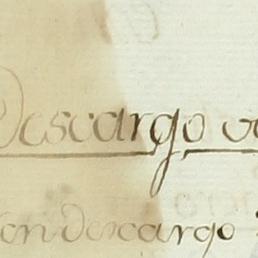 Descargo
en descargo